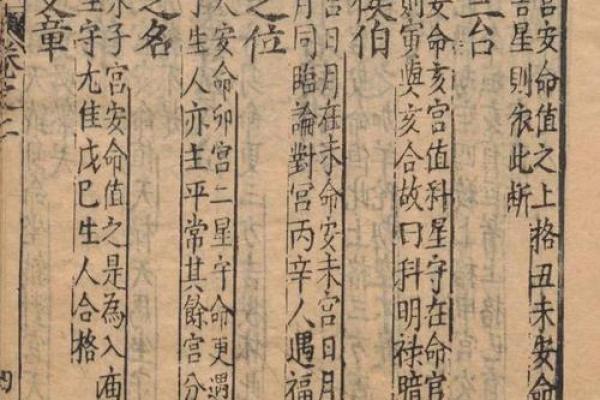 宮安命值之上格丑未安命
吉星則依此断
三台
安命亥宮值科星守在命官
則寅與亥合故曰科明祿暗
侯伯
宮日月在未命安未宮日月
月同臨論對宮丙辛人遇福
之位
人安命卯宮二星守命更遇
丁生人亦主平常其餘宮分
之名
子宮安命值之是為入庙
生守尤佳戊巳生人合格
文章
卷之二